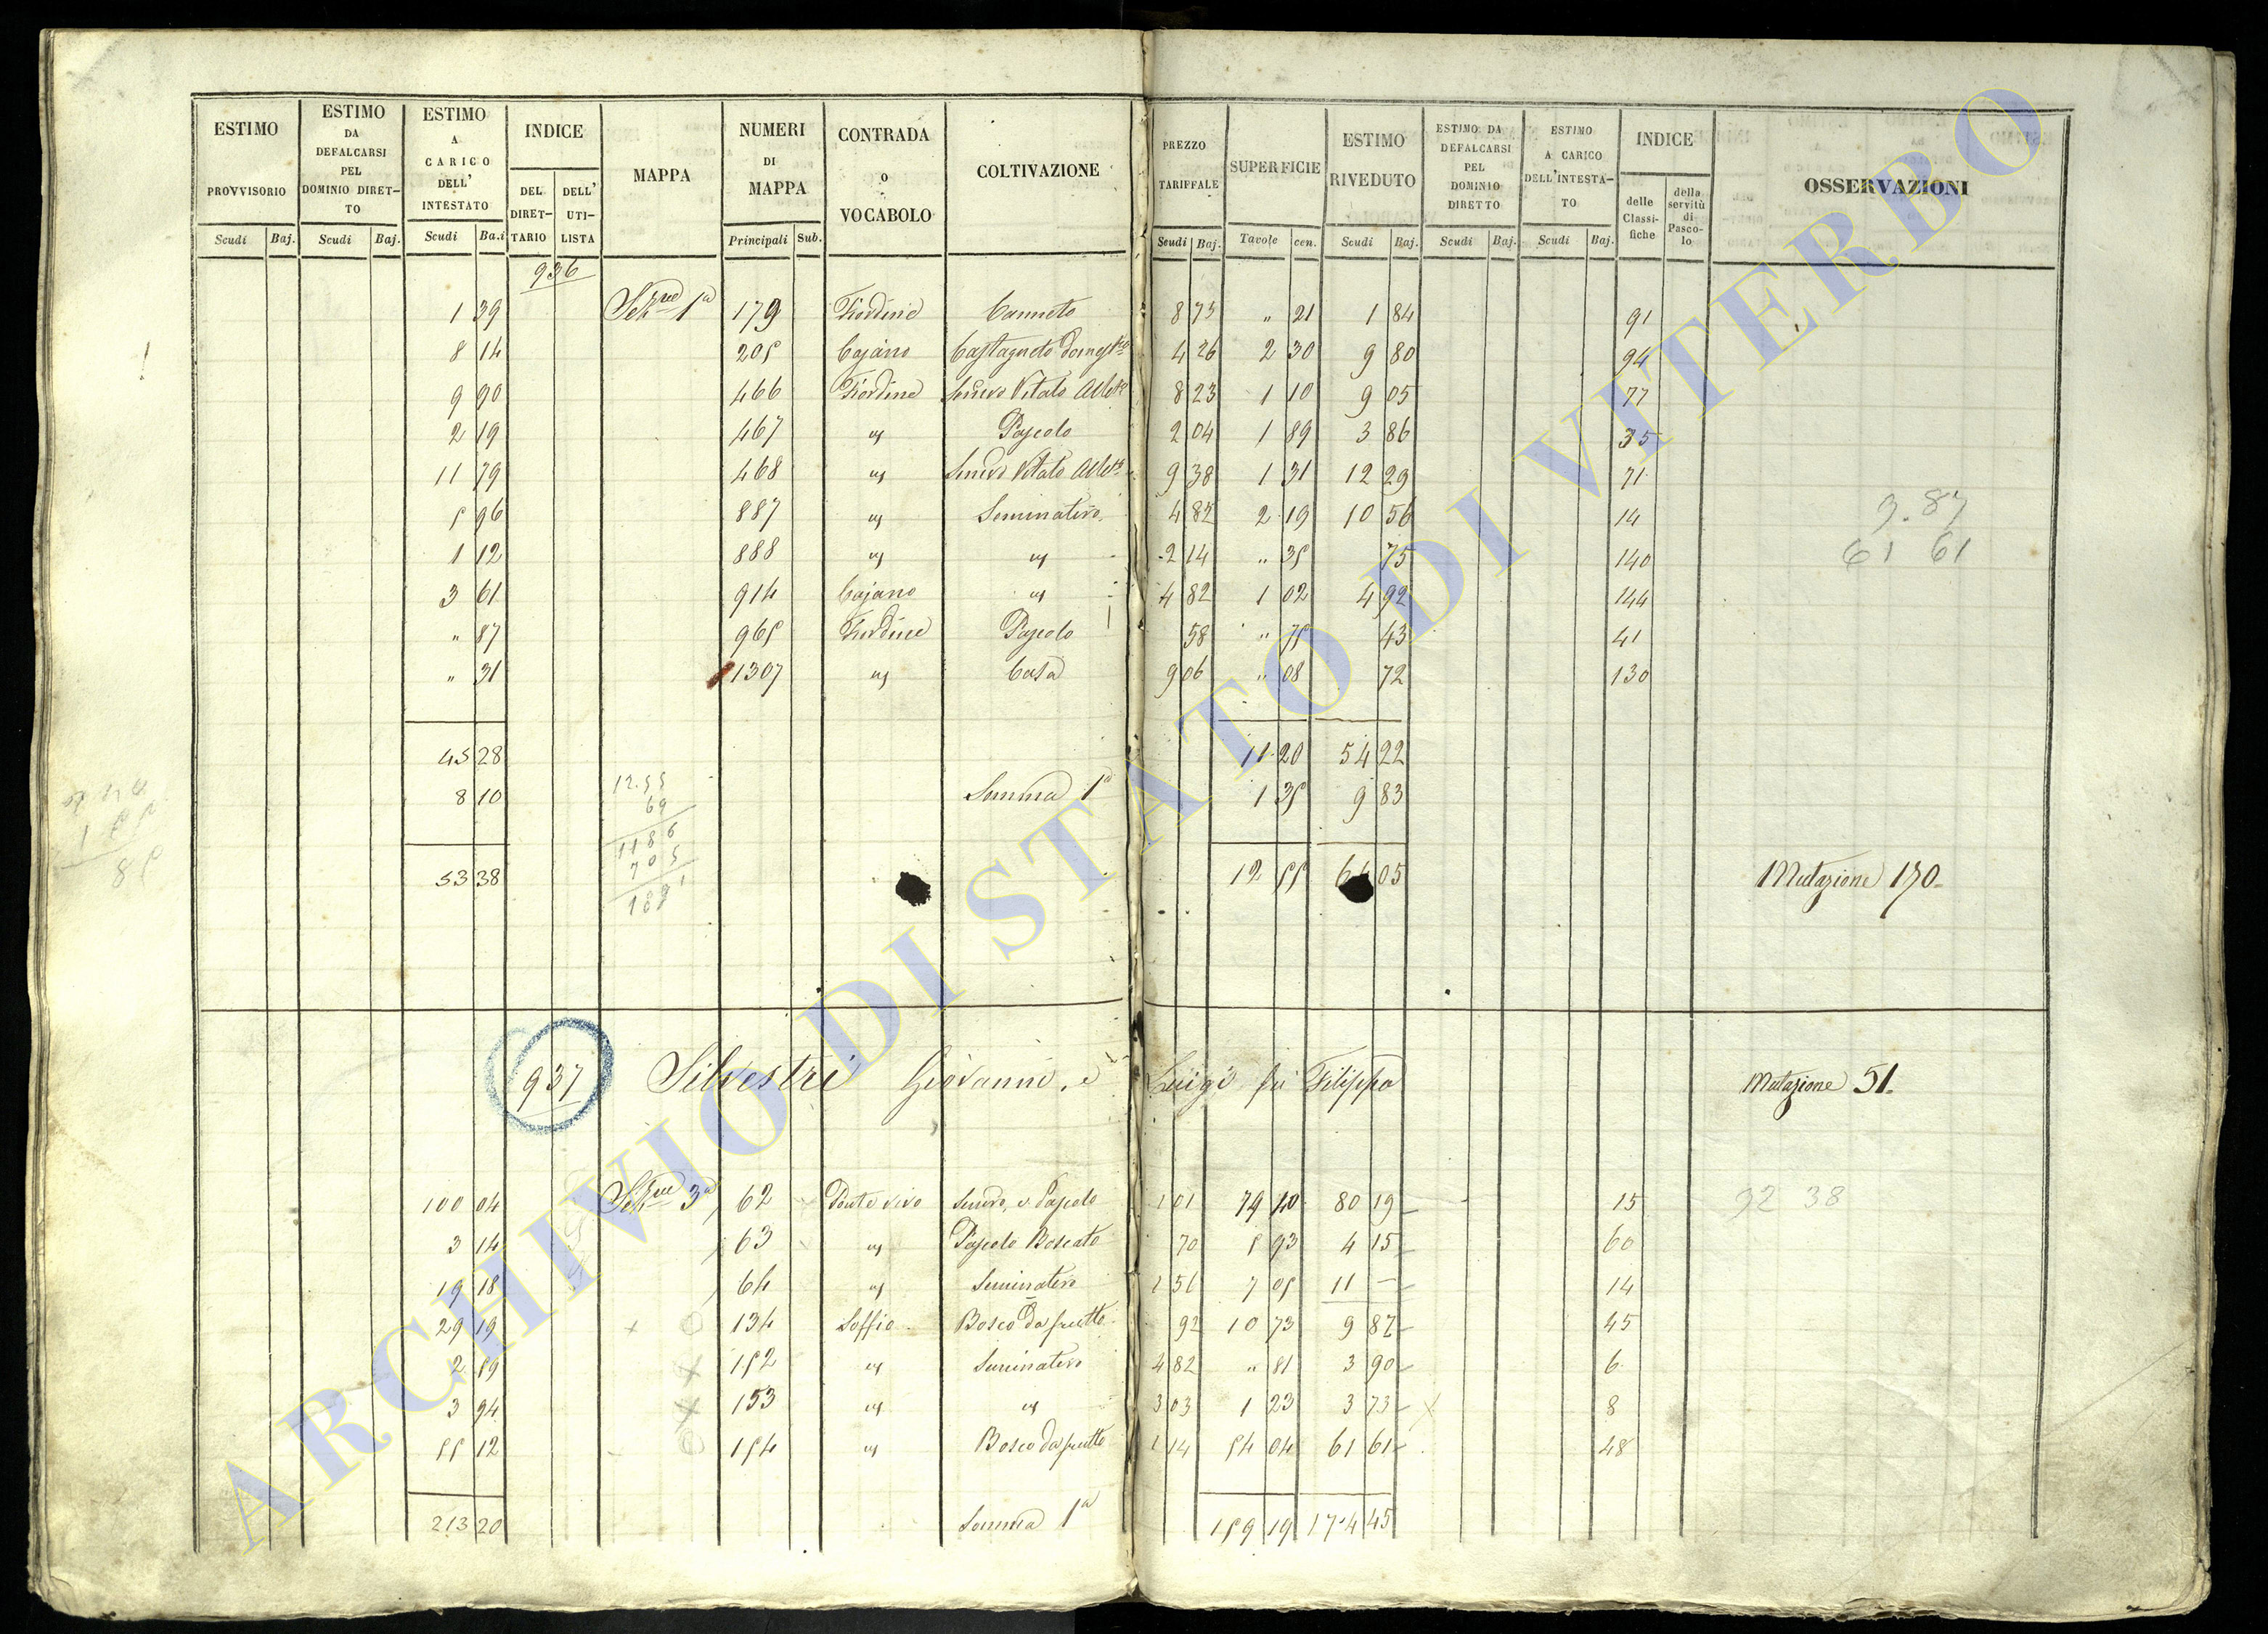 ESTIMO PROVVISORIO | ESTIMO DA DEFALCARSI PEL DOMINIO DIRET-TO | ESTIMO A CARICO DELL' INTESTATO | INDICE | MAPPA | NUMERI DI MAPPA | CONTRADA o VOCABOLO | COLTIVAZIONE | PREZZO TARIFFALE | SUPERFICIE | ESTIMO RIVEDUTO | ESTIMO DA DEFALCARSI PEL DOMINIO DIRETTO | ESTIMO A CARICO DELL'INTESTA-TO | INDICE | OSSERVAZIONI
DEL DIRET-TARIO | DELL' UTI-LISTA | delle Classi-fiche | della servitù di Pasco-lo
Scudi | Baj. | Scudi | Baj. | Scudi | Ba.i | Principali | Sub. | Scudi | Baj. | Tavole | cen. | Scudi | Baj. | Scudi | Baj. | Scudi | Baj.
936
1 39 | 1a | 179 | Fiordine | Canneto | 8 75 | " 21 | 1 84 | 91
8 14 | 205 | Cajano | Castagneto | 4 26 | 2 30 | 9 80 | 94
9 90 | 466 | Fiordine | Vitato | 8 23 | 1 10 | 9 05 | 77
2 19 | 467 | " | Pascolo | 2 04 | 1 89 | 3 86 | 35
11 79 | 468 | " | Vitato | 9 38 | 1 31 | 12 29 | 71
5 96 | 887 | " | Seminativo | 4 82 | 2 19 | 10 56 | 14
1 12 | 888 | " | " | 2 14 | " 35 | 75 | 140
3 61 | 914 | Cajano | " | 4 82 | 1 02 | 4 92 | 144
" 87 | 965 | Fiordine | Pascolo | 58 | " 75 | 43 | 41
" 31 | 1307 | " | Casa | 9 06 | " 08 | 72 | 130
9.87
61 61
45 28 | 11 20 | 54 22
8 10 | Somma 1a | 1 35 | 9 83
12.55
69
1186
705
53 38 | 12 55 | 05 | Mutazione 170
937 Silvestri Giovanni, e Luigi fu Filippo Mutazione 51.
100 04 | 3a | 62 | Ponte vivo | e Pascolo | 1 01 | 79 40 | 80 19 | 15 | 92 38
3 14 | 63 | " | Pascolo Boscato | 70 | 5 93 | 4 15 | 60
19 18 | 64 | " | Seminativo | 1 56 | 7 05 | 11 — | 14
29 19 | 134 | Soffio | Bosco da frutto | 92 | 10 73 | 9 87 | 45
2 59 | 152 | " | Seminativo | 4 82 | " 81 | 3 90 | 6
3 94 | 153 | " | " | 3 03 | 1 23 | 3 73 | 8
55 12 | 154 | " | Bosco da frutto | 1 14 | 54 04 | 61 61 | 48
213 20 | Somma 1a | 159 19 | 174 45
ARCHIVIO DI STATO DI VITERBO